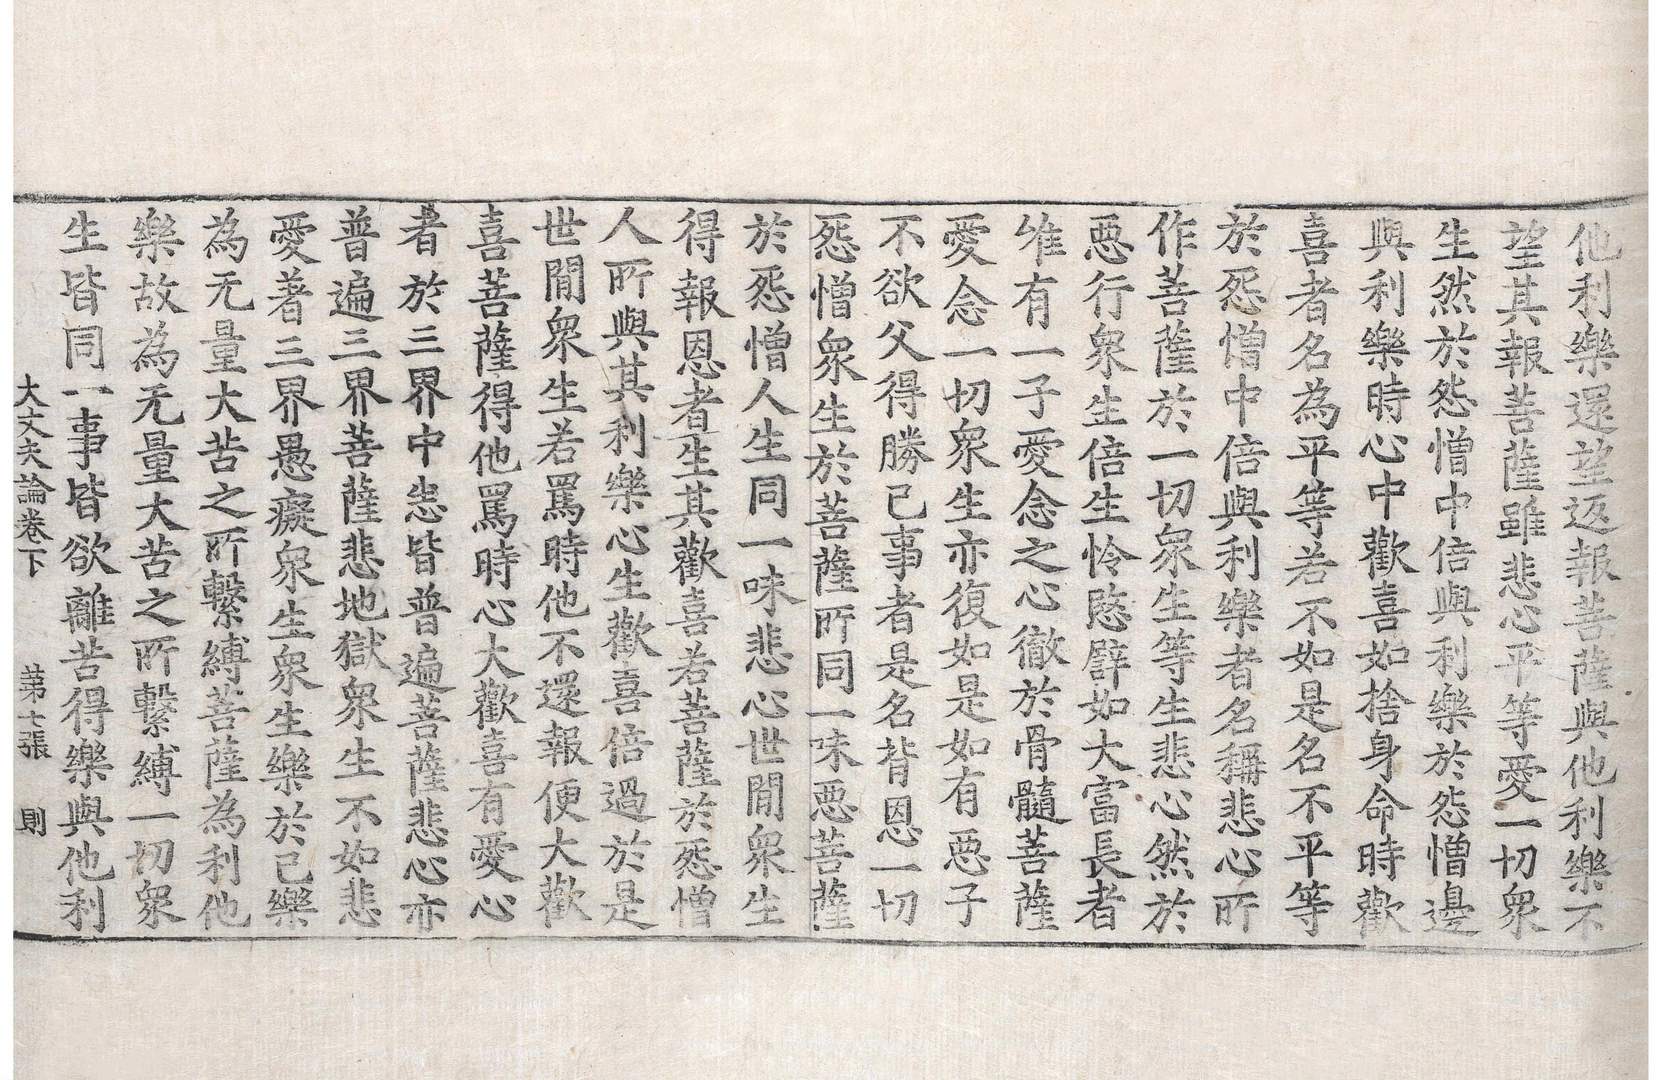 他利樂還望返報菩薩與他利樂不
望其報菩薩雖悲心平等愛一切衆
生然於怨憎中倍與利樂於怨憎邊
與利樂時心中歡喜如捨身命時歡
喜者名為平等若不如是名不平等
於怨憎中倍與利樂者名稱悲心所
作菩薩於一切衆生等生悲心然於
惡行衆生倍生怜愍譬如大富長者
唯有一子愛念之心徹於骨髓菩薩
愛念一切衆生亦復如是如有惡子
不欲父得勝己事者是名背恩一切
怨憎衆生於菩薩所同一味惡菩薩
於怨憎人生同一味悲心世閒衆生
得報恩者生其歡喜若菩薩於怨憎
人所與其利樂心生歡喜倍過於是
世閒衆生若罵時他不還報便大歡
喜菩薩得他罵時心大歡喜有愛心
者於三界中悲皆普遍菩薩悲心亦
普遍三界菩薩悲地獄衆生不如悲
愛著三界愚癡衆生衆生樂於己樂
為无量大苦之所繫縛菩薩為利他
樂故為无量大苦之所繫縛一切衆
生皆同一事皆欲離苦得樂與他利
大丈夫論卷下　第七張　則